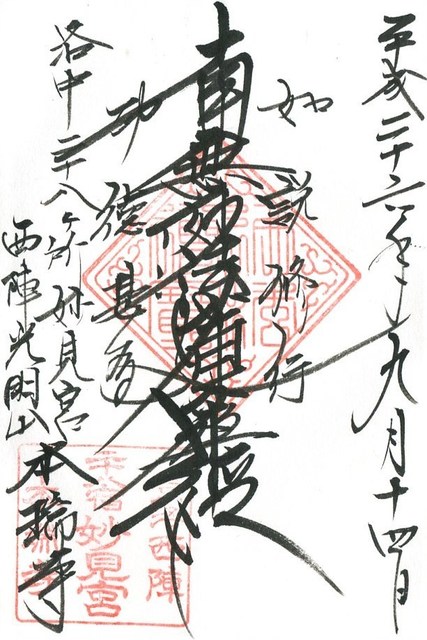 平成二十六年九月十四日
如説修行
南無妙法蓮華経
功徳甚多
洛中二十八ヶ所妙見宮
西陣光明山
本瑞寺
西陣
妙見宮